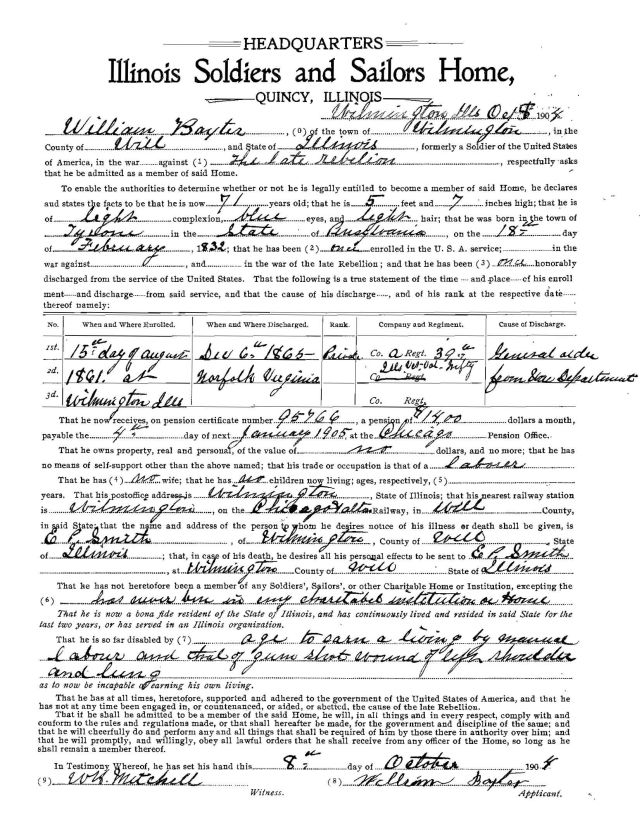 HEADQUARTERS
Illinois Soldiers and Sailors Home,
QUINCY, ILLINOIS
Wilmington Ills Oct 8 1904
William Baxter, (0) of the town of Wilmington, in the
County of Will, and State of Illinois, formerly a Soldier of the United States
of America, in the war against (1) The late rebelion, respectfully asks
that he be admitted as a member of said Home.
To enable the authorities to determine whether or not he is legally entitled to become a member of said Home, he declares
and states the facts to be that he is now 71 years old; that he is 5 feet and 7 inches high; that he is
of light complexion, blue eyes, and light hair; that he was born in the town of
Tyrone in the State of Pensylvania, on the 18th day
of February, 1832; that he has been (2) once enrolled in the U. S. A. service; in the
war against , and in the war of the late Rebellion; and that he has been (3) once honorably
discharged from the service of the United States. That the following is a true statement of the time and place of his enroll
ment and discharge from said service, and that the cause of his discharge , and of his rank at the respective date
thereof namely:
No. When and Where Enrolled. When and Where Discharged. Rank. Company and Regiment. Cause of Discharge.
1st. 15th day of august Dec 6th 1865 Private Co. A Regt. 39th General order
2d. 1861 at Norfolk Virginia Ills Vet. Vol. Infty Co. Regt. from War Department
3d. Wilmington Ills Co. Regt.
That he now receives, on pension certificate number 95766, a pension of $14.00 dollars a month,
payable the 4th day of next January 1905, at the Chicago Pension Office.
That he owns property, real and personal, of the value of no dollars, and no more; that he has
no means of self-support other than the above named; that his trade or occupation is that of a laborer
That he has (4) no wife; that he has no children now living; ages, respectively, (5)
years. That his postoffice address is Wilmington, State of Illinois; that his nearest railway station
is Wilmington, on the Chicago & alton Railway, in Will County,
in said State; that the name and address of the person to whom he desires notice of his illness or death shall be given, is
E P. Smith, of Wilmington, County of Will, State
of Illinois; that, in case of his death, he desires all his personal effects to be sent to E P. Smith
, at Wilmington County of Will State of Illinois
That he has not heretofore been a member of any Soldiers', Sailors', or other Charitable Home or Institution, excepting the
(6) has never ben in any charitabel institution or Home
That he is now a bona fide resident of the State of Illinois, and has continuously lived and resided in said State for the
last two years, or has served in an Illinois organization.
That he is so far disabled by (7) age to earn a living by manual
labour and that of gun shot wound of left shoulder
and lung
as to now be incapable of earning his own living.
That he has at all times, heretofore, supported and adhered to the government of the United States of America, and that he
has not at any time been engaged in, or countenanced, or aided, or abetted, the cause of the late Rebellion.
That if he shall be admitted to be a member of the said Home, he will, in all things and in every respect, comply with and
conform to the rules and regulations made, or that shall hereafter be made, for the government and discipline of the same; and
that he will cheerfully do and perform any and all things that shall be required of him by those there in authority over him; and
that he will promptly, and willingly, obey all lawful orders that he shall receive from any officer of the Home, so long as he
shall remain a member thereof.
In Testimony Whereof, he has set his hand this 8th day of October 1904
(9) W.H. Mitchell (8) William Baxter
Witness. Applicant.